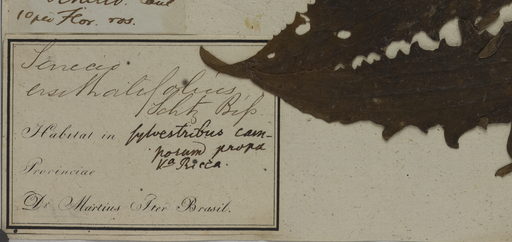 10 ped Flor. ros.
Senecio
ersithalifolius
Schtz Bip
Habitat in sylvestribus cam-
porum propa
Va Ricca.
Provinciae
Dr Martius Iter Brasil.